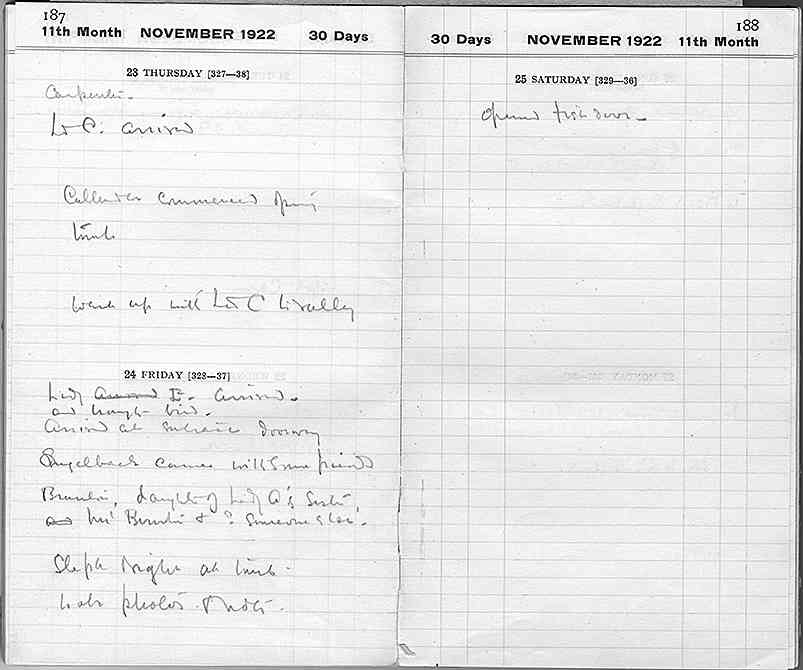 187
11th Month NOVEMBER 1922 30 Days
23 THURSDAY [327—38]
Carpenter.
Ld C. arrived
Callender commenced opening
tomb
Went up with Ld C to valley
24 FRIDAY [328—37]
Lady E. arrived.
and brought bird.
Arrived at entrance doorway
Engelbach came with some friends
Brunton, daughter of Lady A's sister,
Mrs Brunton & ? someone else.
Slept night at tomb.
photos & notes.
188
30 Days NOVEMBER 1922 11th Month
25 SATURDAY [329—36]
Opened first door—